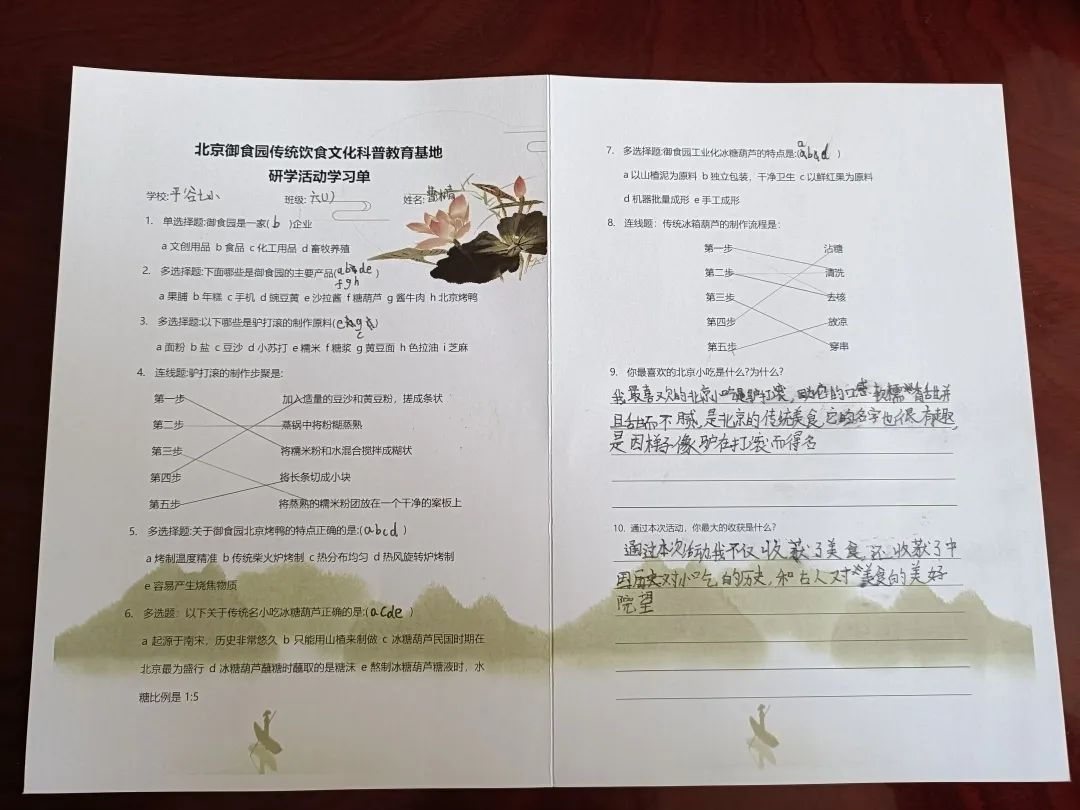 北京御食园传统饮食文化科普教育基地
研学活动学习单
学校:平谷七小 班级:六(1) 姓名:
1. 单选择题:御食园是一家( b )企业
a 文创用品 b 食品 c 化工用品 d 畜牧养殖
2. 多选择题:下面哪些是御食园的主要产品(abde
fgh )
a 果脯 b 年糕 c 手机 d 豌豆黄 e 沙拉酱 f 糖葫芦 g 酱牛肉 h 北京烤鸭
3. 多选择题:以下哪些是驴打滚的制作原料(e g
c )
a 面粉 b 盐 c 豆沙 d 小苏打 e 糯米 f 糖浆 g 黄豆面 h 色拉油 i 芝麻
4. 连线题:驴打滚的制作步聚是:
第一步 加入适量的豆沙和黄豆粉，搓成条状
第二步 蒸锅中将粉糊蒸熟
第三步 将糯米粉和水混合搅拌成糊状
第四步 将长条切成小块
第五步 将蒸熟的糯米粉团放在一个干净的案板上
5. 多选择题:关于御食园北京烤鸭的特点正确的是:(abcd )
a 烤制温度精准 b 传统柴火炉烤制 c 热分布均匀 d 热风旋转炉烤制
e 容易产生烧焦物质
6. 多选题：以下关于传统名小吃冰糖葫芦正确的是:(acde )
a 起源于南宋，历史非常悠久 b 只能用山楂来制做 c 冰糖葫芦民国时期在
北京最为盛行 d 冰糖葫芦蘸糖时蘸取的是糖沫 e 熬制冰糖葫芦糖液时，水
糖比例是 1:5
7. 多选择题:御食园工业化冰糖葫芦的特点是:(abd )
a 以山楂泥为原料 b 独立包装，干净卫生 c 以鲜红果为原料
d 机器批量成形 e 手工成形
8. 连线题：传统冰箱葫芦的制作流程是：
第一步 沾糖
第二步 清洗
第三步 去核
第四步 放凉
第五步 穿串
9. 你最喜欢的北京小吃是什么?为什么?
我最喜欢的北京小吃是驴打滚，它的口感软糯香甜并
且甜而不腻，是北京的传统美食，它的名字也很有趣，
是因样子像驴在打滚而得名
10. 通过本次活动，你最大的收获是什么?
通过本次活动我不仅收获了美食，还收获了中
国历史对小吃的历史，和古人对美食的美好
望